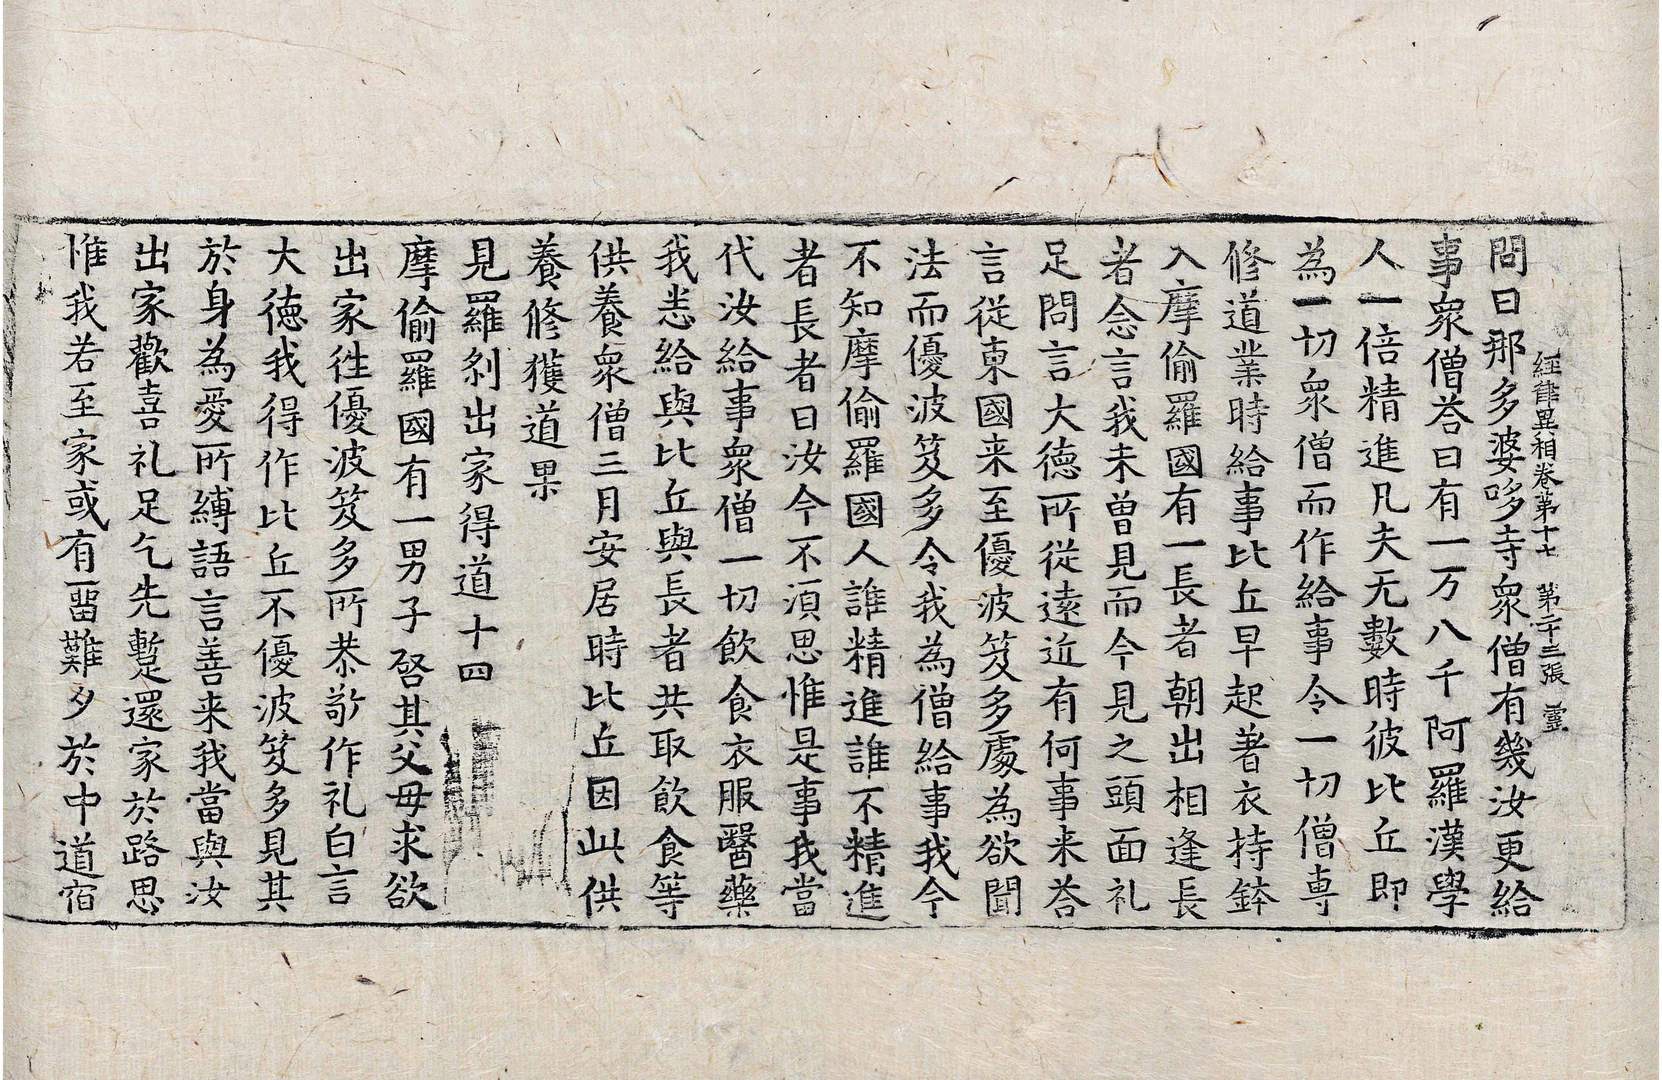 經律異相卷第十七 第二十三張 靈
問曰那多婆哆寺衆僧有幾汝更給
事衆僧荅曰有一万八千阿羅漢學
人一倍精進凡夫无數時彼比丘即
為一切衆僧而作給事令一切僧專
修道業時給事比丘早起著衣持鉢
入摩偷羅國有一長者朝出相逢長
者念言我未曾見而今見之頭面礼
足問言大德所從遠近有何事来荅
言從東國来至優波笈多處為欲聞
法而優波笈多令我為僧給事我今
不知摩偷羅國人誰精進誰不精進
者長者曰汝今不湏思惟是事我當
代汝給事衆僧一切飲食衣服醫藥
我悉給與比丘與長者共取飲食等
供養衆僧三月安居時比丘因此供
養修獲道果
見羅剎出家得道十四
摩偷羅國有一男子啓其父母求欲
出家往優波笈多所恭敬作礼白言
大德我得作比丘不優波笈多見其
於身為愛所縛語言善来我當與汝
出家歡喜礼足乞先暫還家於路思
惟我若至家或有留難夕於中道宿